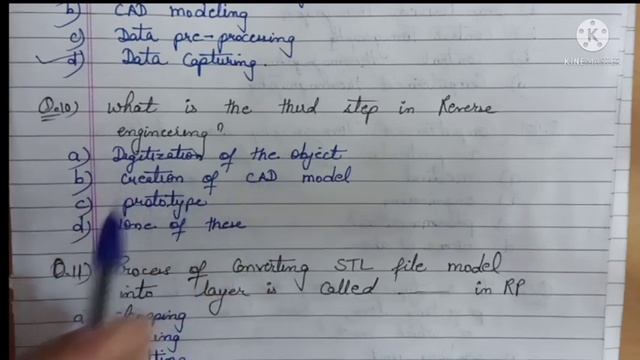 b) CAD modeling
c) Data pre-processing
d) Data Capturing.
KINEMASTER
Q.10) what is the third step in Reverse
engineering?
a) Digitization of the object
b) creation of CAD model
c) prototype
d) None of these
Q.11) Process of Converting STL file model
into layer is called ___ in RP
a)